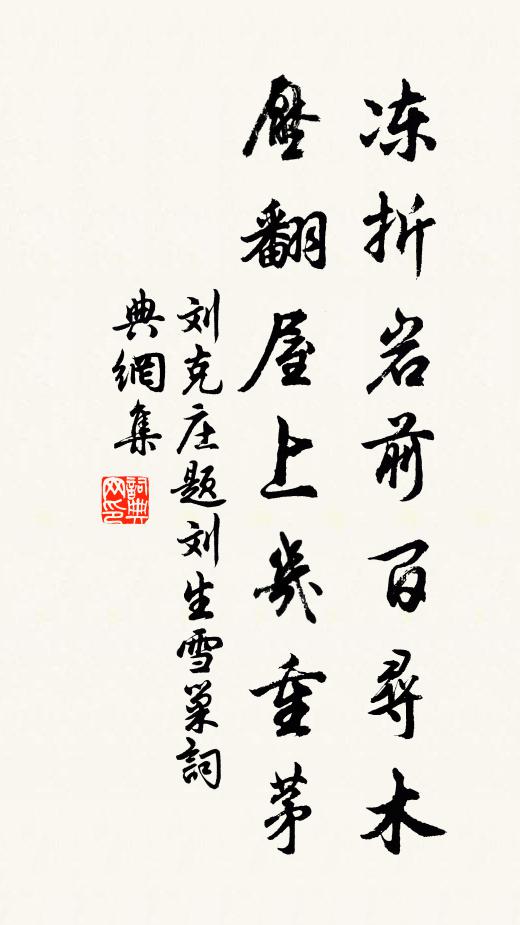 冻折岩前百尋木
壓翻屋上幾重茅
刘克庄题刘生雪巢詞
典網集
詞典网印